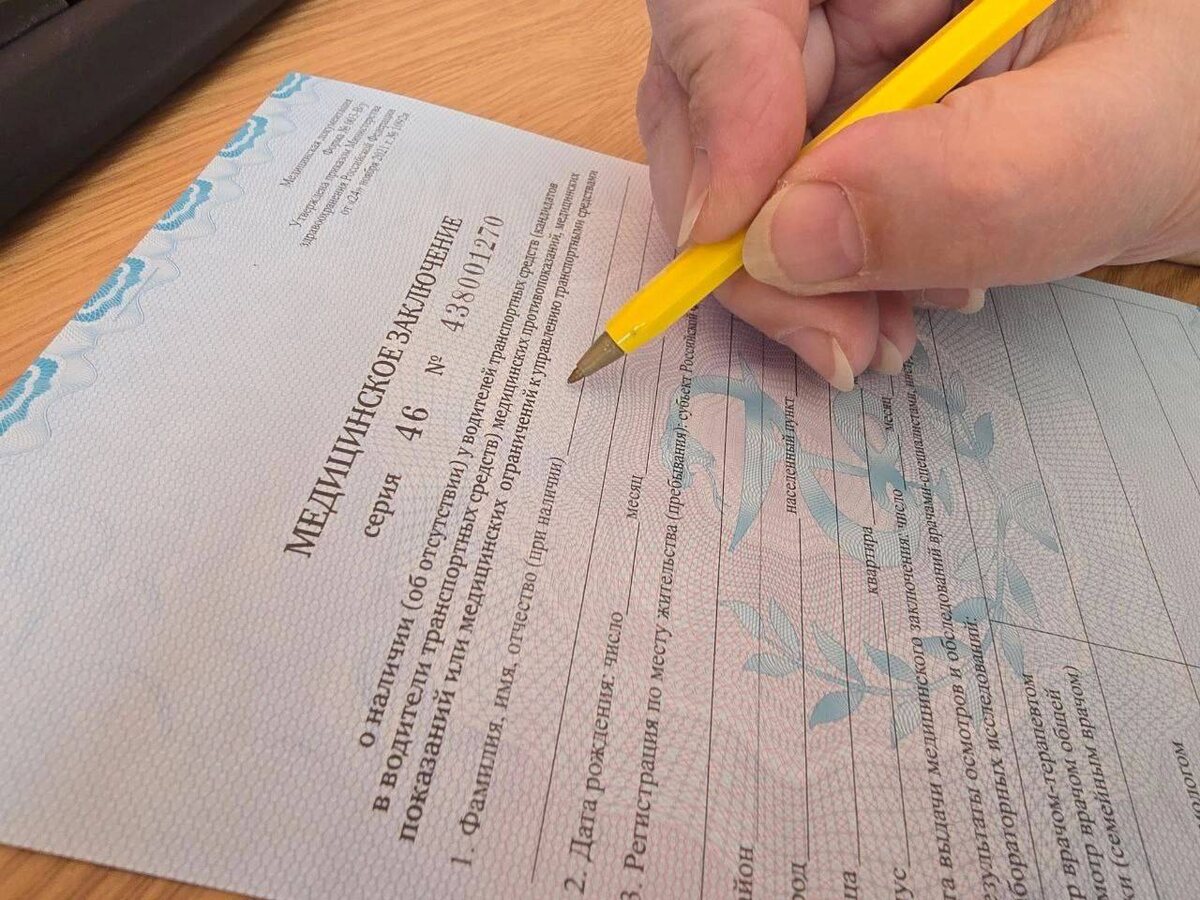 Медицинская документация
Форма № 003-В/у
Утверждена приказом Министерства
здравоохранения Российской Федерации
от «24» ноября 2021 г. № 1092н
МЕДИЦИНСКОЕ ЗАКЛЮЧЕНИЕ
серия 46 № 4380001270
о наличии (об отсутствии) у водителей транспортных средств (кандидатов
в водители транспортных средств) медицинских противопоказаний, медицинских
показаний или медицинских ограничений к управлению транспортными средствами
1. Фамилия, имя, отчество (при наличии)
2. Дата рождения: число месяц
3. Регистрация по месту жительства (пребывания): субъект Российской
айон
род населенный пункт
ца
ус квартира
та выдачи медицинского заключения: число месяц
езультаты осмотров и обследований врачами-специалистами,
бораторных исследований:
р врачом-терапевтом
мотр врачом общей
ки (семейным врачом)